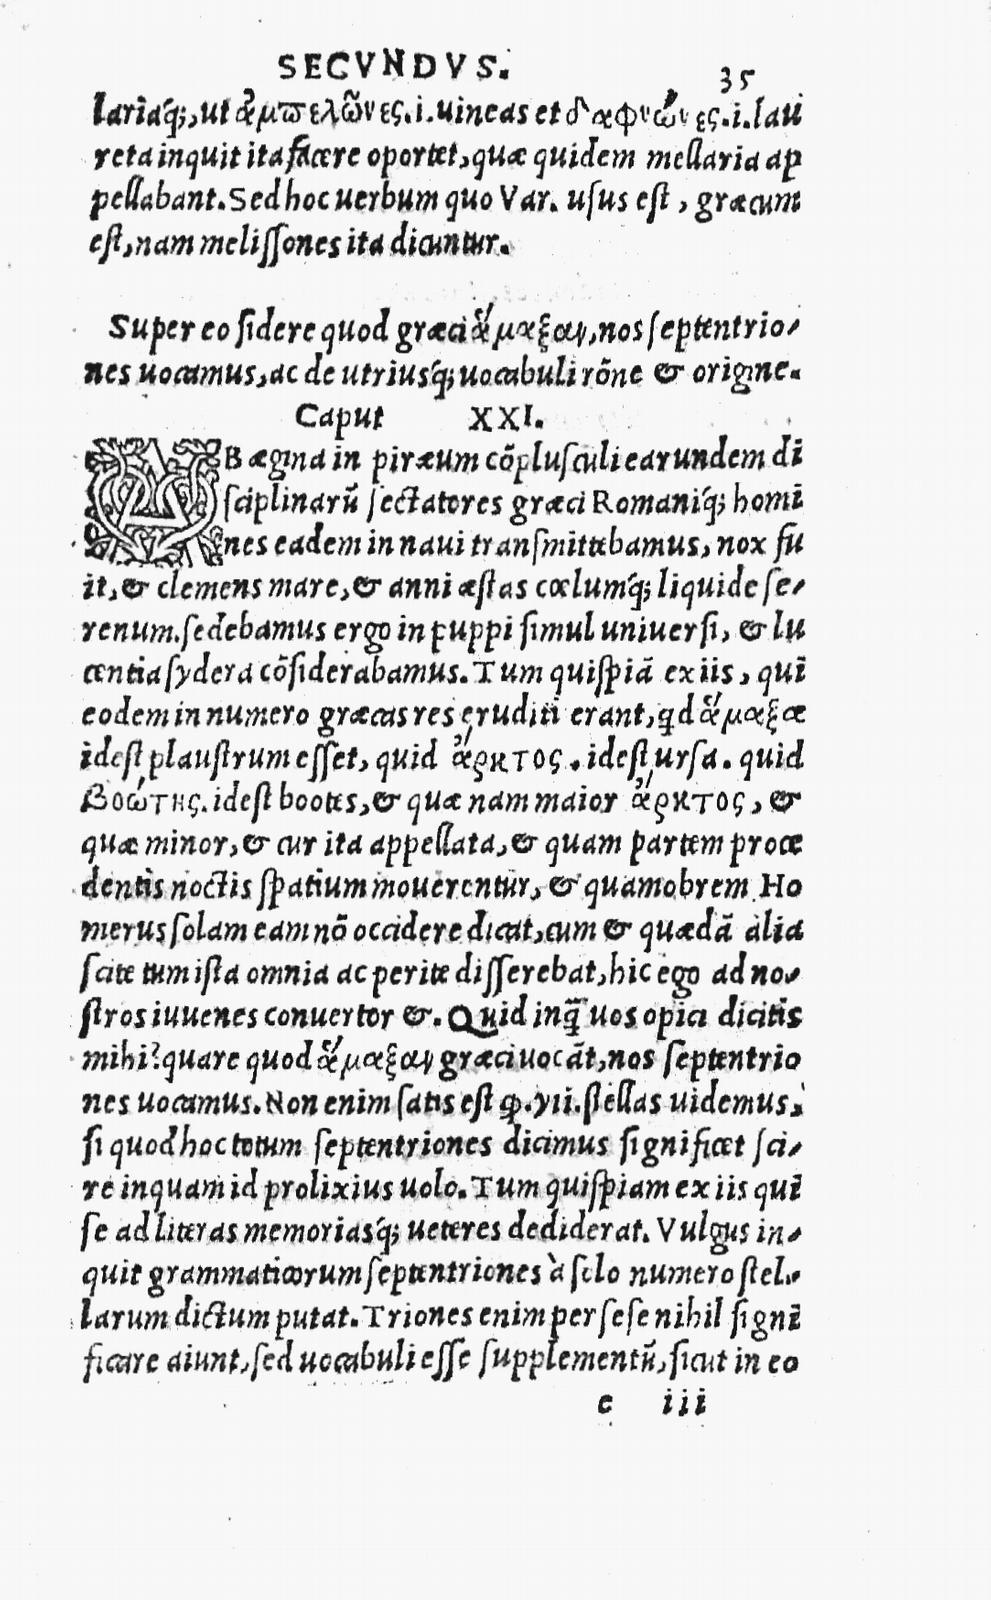 SECVNDVS.
35
lariaq́;, ut ἀμπελῶνες.i.uineas et δαφνῶνες.i.lau
reta inquit ita facere oportet, quæ quidem mellaria ap
pellabant. Sed hoc uerbum quo Var. usus est, græcum
est, nam melissones ita dicuntur.
Super eo sidere quod græci ἅμαξαν, nos septentrio-
nes uocamus, ac de utriusq́; uocabuli rōne & origine.
Caput XXI.
AB ægina in piræum cōplusculi earundem di
sciplinarū sectatores græci Romaniq́; homi
nes eadem in naui transmittebamus, nox fu
it, & clemens mare, & anni æstas cœlumq́; liquide se-
renum. sedebamus ergo in puppi simul uniuersi, & lu
centia sydera cōsiderabamus. Tum quispiā ex iis, qui
eodem in numero græcas res eruditi erant, qd ἅμαξα
idest plaustrum esset, quid ἄρκτος. idest ursa. quid
βοώτης. idest bootes, & quæ nam maior ἄρκτος, &
quæ minor, & cur ita appellata, & quam partem proce
dentis noctis spatium mouerentur, & quamobrem Ho
merus solam eam nō occidere dicat, cum & quædā alia
scite tum ista omnia ac perite disserebat, hic ego ad no-
stros iuuenes conuertor &. Quid inq̄ uos opici dicitis
mihi? quare quod ἅμαξαν græci uocāt, nos septentrio
nes uocamus. Non enim satis est ꝙ.yii. stellas uidemus,
si quod hoc totum septentriones dicimus significet sci-
re inquam id prolixius uolo. Tum quispiam ex iis qui
se ad literas memoriasq́; ueteres dediderat. Vulgus in-
quit grammaticorum septentriones à solo numero stel-
larum dictum putat. Triones enim per se se nihil signi
ficare aiunt, sed uocabuli esse supplementū, sicut in eo
e iii